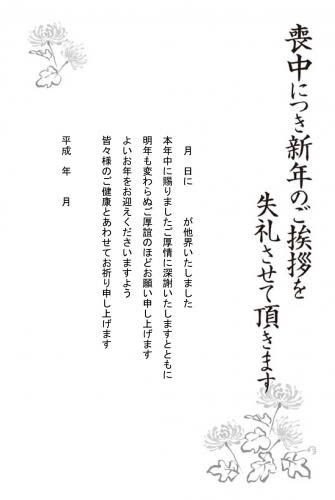 喪中につき新年のご挨拶を
失礼させて頂きます
月　日に　　が他界いたしました
本年中に賜りましたご厚情に深謝いたしますとともに
明年も変わらぬご厚誼のほどお願い申し上げます
よいお年をお迎えくださいますよう
皆々様のご健康とあわせてお祈り申し上げます
平成　年　月